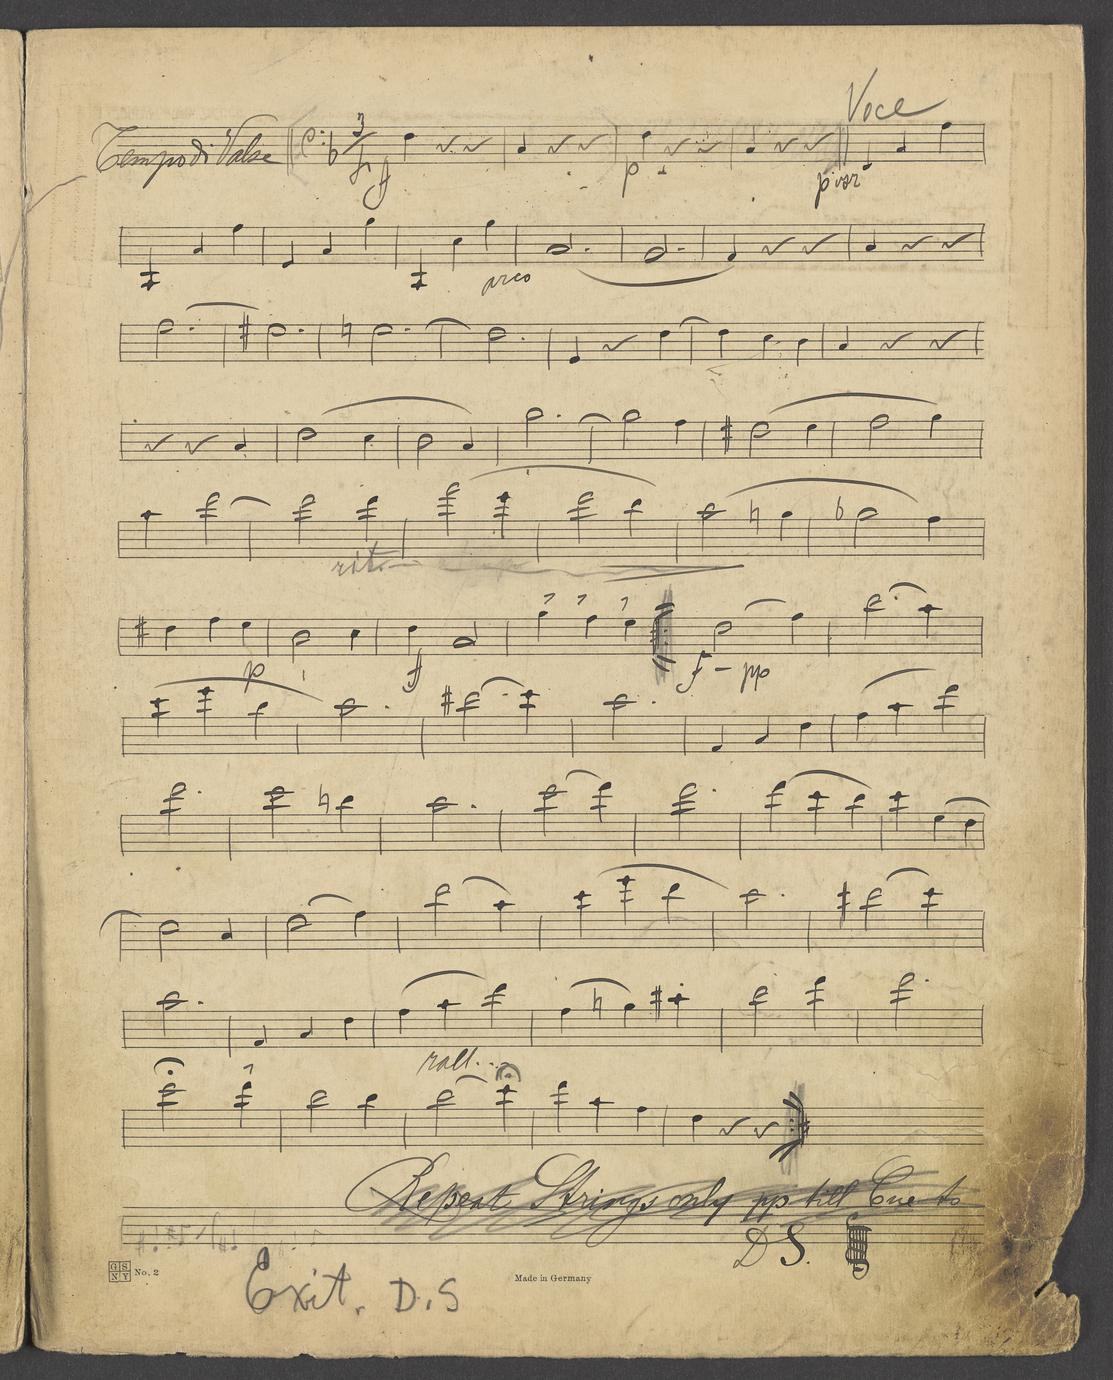 Voce
Tempo di Valse 3/4 f p pizz
arco
rit.
p f f - pp
rall...
Repeat Strings only pp till Cue to
D S.
GS NY No. 2 Made in Germany
Exit. D.S